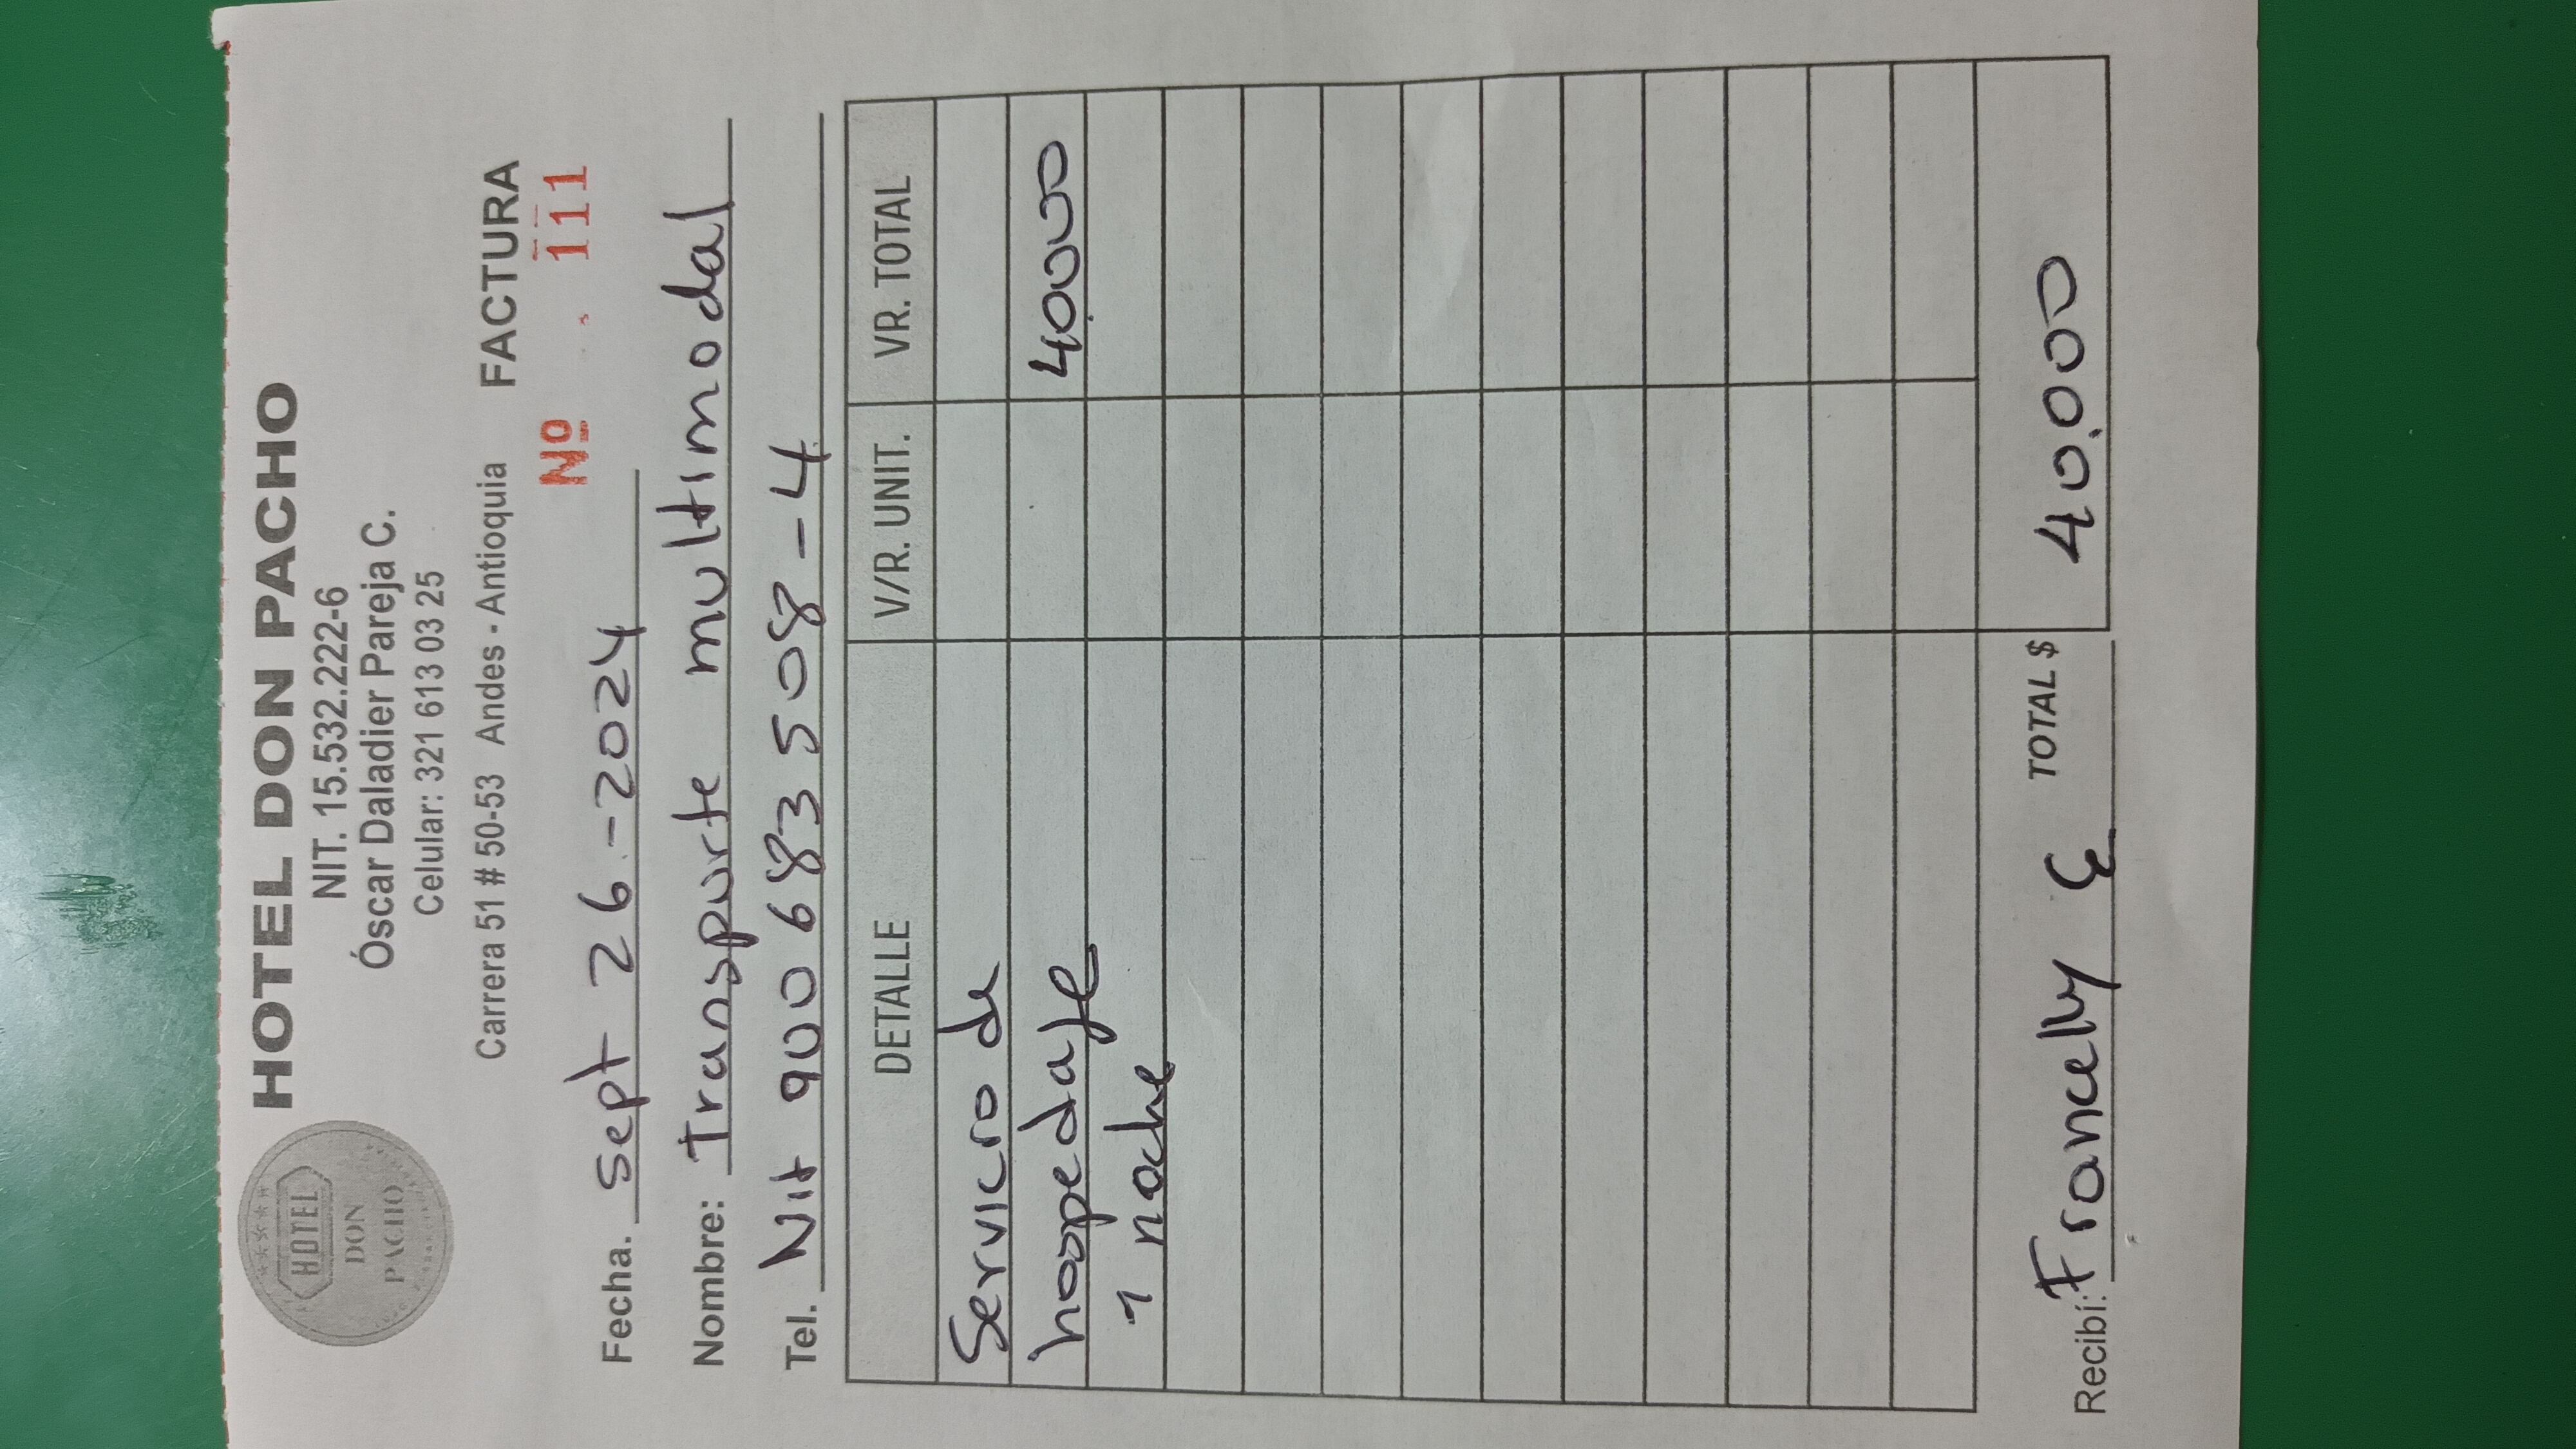 HOTEL DON PACHO
HOTEL
DON
PACHO
NIT. 15.532.222-6
Óscar Daladier Pareja C.
Celular: 321 613 03 25
Carrera 51 # 50-53 Andes - Antioquia FACTURA
No 111
Fecha. Sept 26-2024
Nombre: Transporte multimodal
Tel. Nit 900 683 508-4
DETALLE V/R. UNIT. VR. TOTAL
Servicio de
hospedaje 40.000
1 noche
Recibí: Francelly C TOTAL $ 40.000